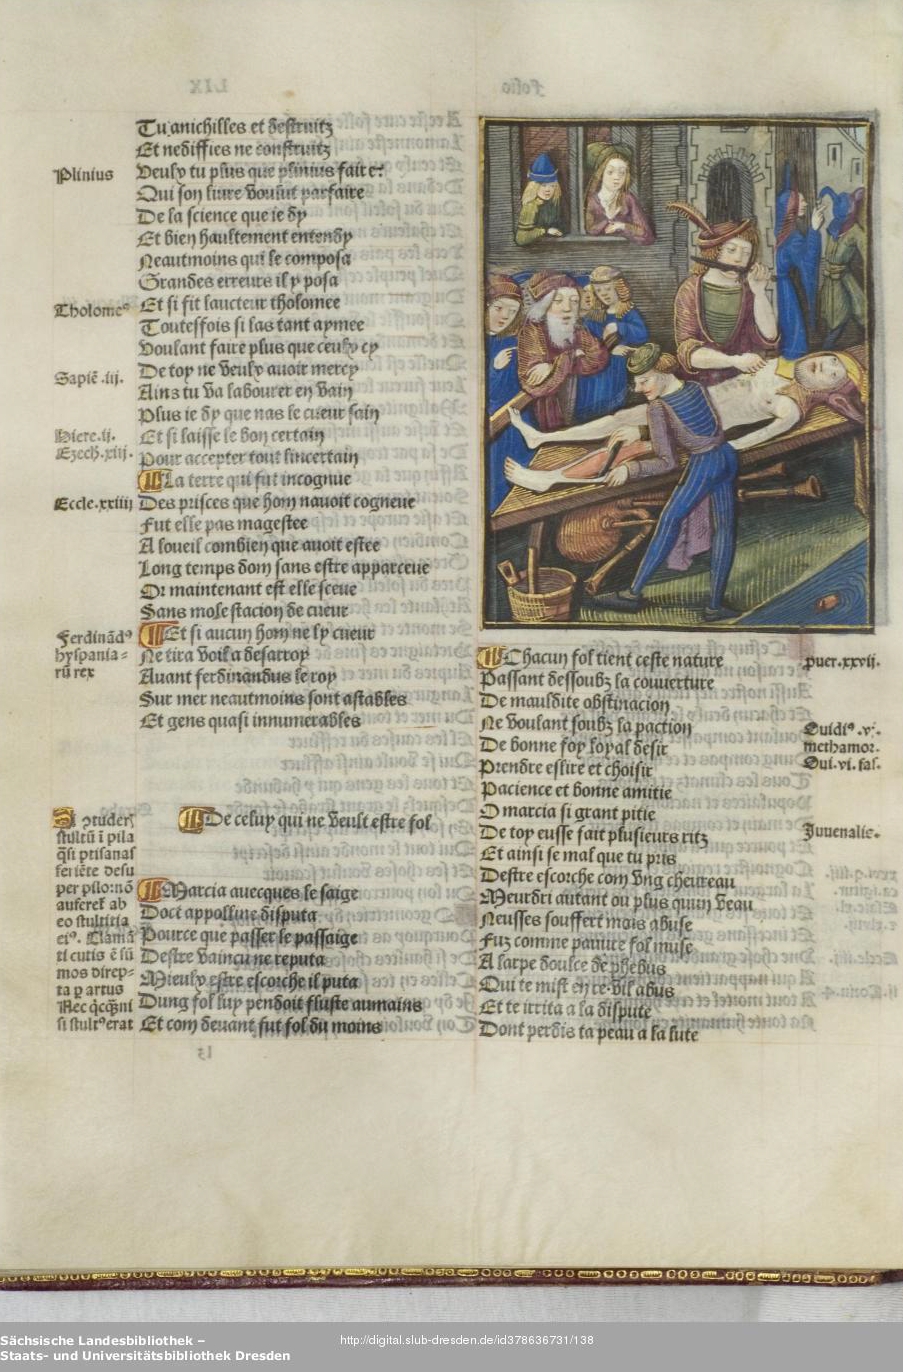 Tu anichilles et destruitz
Et nediffies ne construitz
Plinius
Veulx tu plus que plinius faire
Qui son livre voulut parfaire
De la science que ie dy
Et bien haultement entendy
Neautmoins qui le composa
Grandes erreurs il y posa
Tholomeꝰ
Et si fit laucteur tholomee
Toutesfois si las tant aymee
Voulant faire plus que ceulx cy
Sapiē .iij.
De toy ne veulx avoir mercy
Ains tu va labourer en vain
Plus ie dy que nas le cueur sain
Hiere .ij.
Et si laisse le bon certain
Ezech .xiij.
Pour accepter tout lincertain
La terre qui fut incognue
Eccle .xxiiij
Des prisces que hom navoit cogneue
Fut elle pas magestee
A loueil combien que avoit estee
Long temps dom sans estre apparceue
Or maintenant est elle sceue
Sans mole stacion de cueur
Ferdinādꝰ
hyspania-
rū rex
Et si aucun hom ne ly cueur
Ne tira voila desarroy
Avant ferdinandus le roy
Sur mer neautmoins sont astables
Et gens quasi innumerables
De celuy qui ne veult estre fol
stultū ī pila
q̄si ptisanas
feriēte desu
per pilo: nō
auferet ab
eo stultitia
eiꝰ. Clamā
ti cutis ē sū
mos direp-
ta ꝑ artus
Nec q̇cq̄̄ni
si stultꝰ erat
Marcia avecques le saige
Doct appolline disputa
Pource que passer le passaige
Destre vaincu ne reputa
Mieulx estre escorche il puta
Dung fol luy pendoit fluste aumains
Et com devant fut fol du moins
Chacun fol tient ceste nature
Puer .xxvij.
Passant dessoubz la couverture
De mauldite obstinacion
Ne voulant soubz la paction
Ouidiꝰ .vi.
methamor.
Oui .vi. fas.
De bonne foy loyal desir
Prendre eslire et choisir
Pacience et bonne amitie
O marcia si grant pitie
Juvenalis.
De toy eusse fait plusieurs ritz
Et ainsi se mal que tu pris
Destre escorche com vng chevreau
Meurdri autant ou plus quun veau
Neusses souffert mais abuse
Fuz comme pauvre fol muse
A larpe doulce de phebus
Qui te mist en re vil abus
Et te irrita a la dispute
Dont perdis ta peau a la lute
Sächsische Landesbibliothek –
Staats- und Universitätsbibliothek Dresden
http://digital.slub-dresden.de/id378636731/138